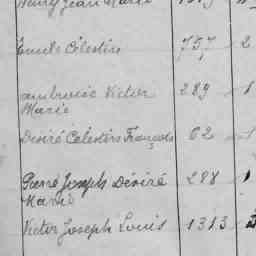 Henry Jean Marie
Emile Célestin 757 2
Ambroise Victor 289 1
Marie
Désiré Célestin François 62 1
Pierre Joseph Désiré 288 1
Marie
Victor Joseph Louis 1313